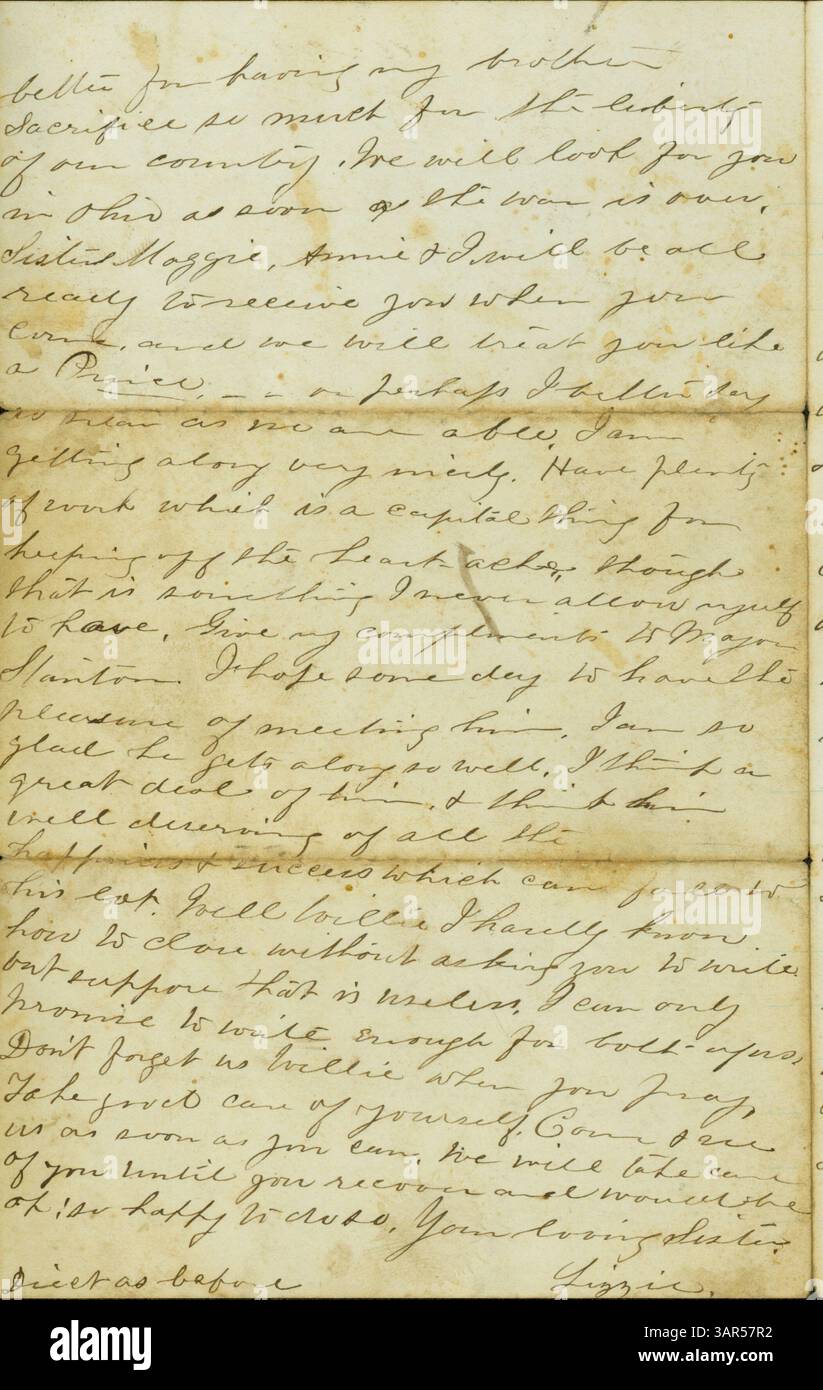 better for having my brother
Sacrifice so much for the liberty
of our country. We will look for you
in Ohio as soon as the war is over.
Sister Maggie, Annie & I will be all
ready to receive you when you
come, and we will treat you like
a Prince, - - or perhaps I better say
as near as we are able. I am
getting along very nicely. Have plenty
of work which is a capital thing for
keeping off the heart-ache, though
that is something I never allow myself
to have. Give my compliments to Major
Stanton. I hope some day to have the
pleasure of meeting him. I am so
glad he gets along so well. I think a
great deal of him, & think him
well deserving of all the
happiness & success which can fall to
his lot. Well Willie I hardly know
how to close without asking you to write
but suppose that is useless. I can only
promise to write enough for both of us.
Don't forget us Willie when you pray,
Take good care of yourself. Come & see
us as soon as you can. We will take care
of you until you recover and would be
oh! so happy to do so. Your loving Sister
Direct as before Lizzie.
alamy
Image ID: 3AR57R2
www.alamy.com